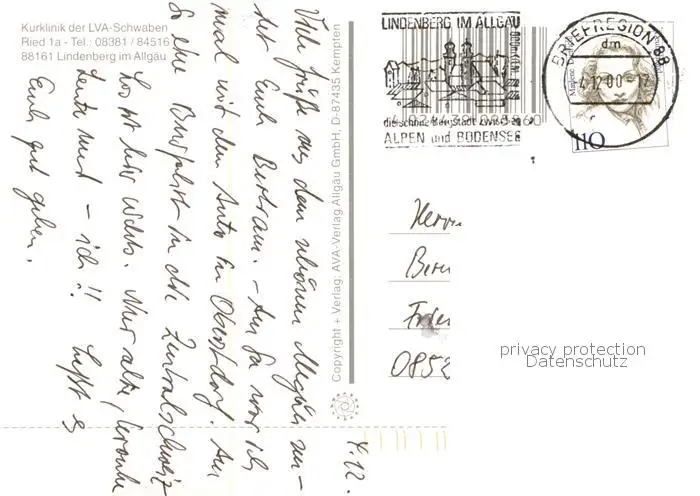 Kurklinik der LVA-Schwaben
Ried 1a - Tel.: 08381 / 84516
88161 Lindenberg im Allgäu
4.12.
Viele Grüße aus dem schönen Allgäu sen-
det Euch Bertram. - Am Sa war ich
mal mit dem Auto in Oberstdorf. Am
So eine Busfahrt in die Zentralschweiz
Sonst hier nichts. Nur alte, kranke
Leute und - ich!! Laßt es
Euch gut gehen.
Copyright + Verlag: AVA-Verlag Allgäu GmbH, D-87435 Kempten
LINDENBERG IM ALLGÄU
die schöne Bergstadt zwischen
ALPEN und BODENSEE
BRIEFREGION 88
dm
4.12.00 - 17
110
Herrn
Bern
0852
privacy protection
Datenschutz